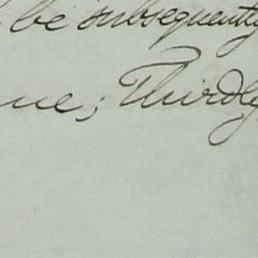 be subsequently
ue; Thirdly